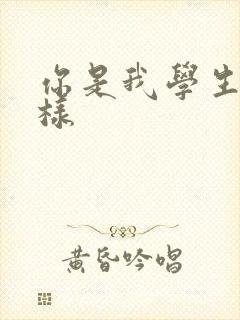 你是我學生
樣
黃昏吟唱